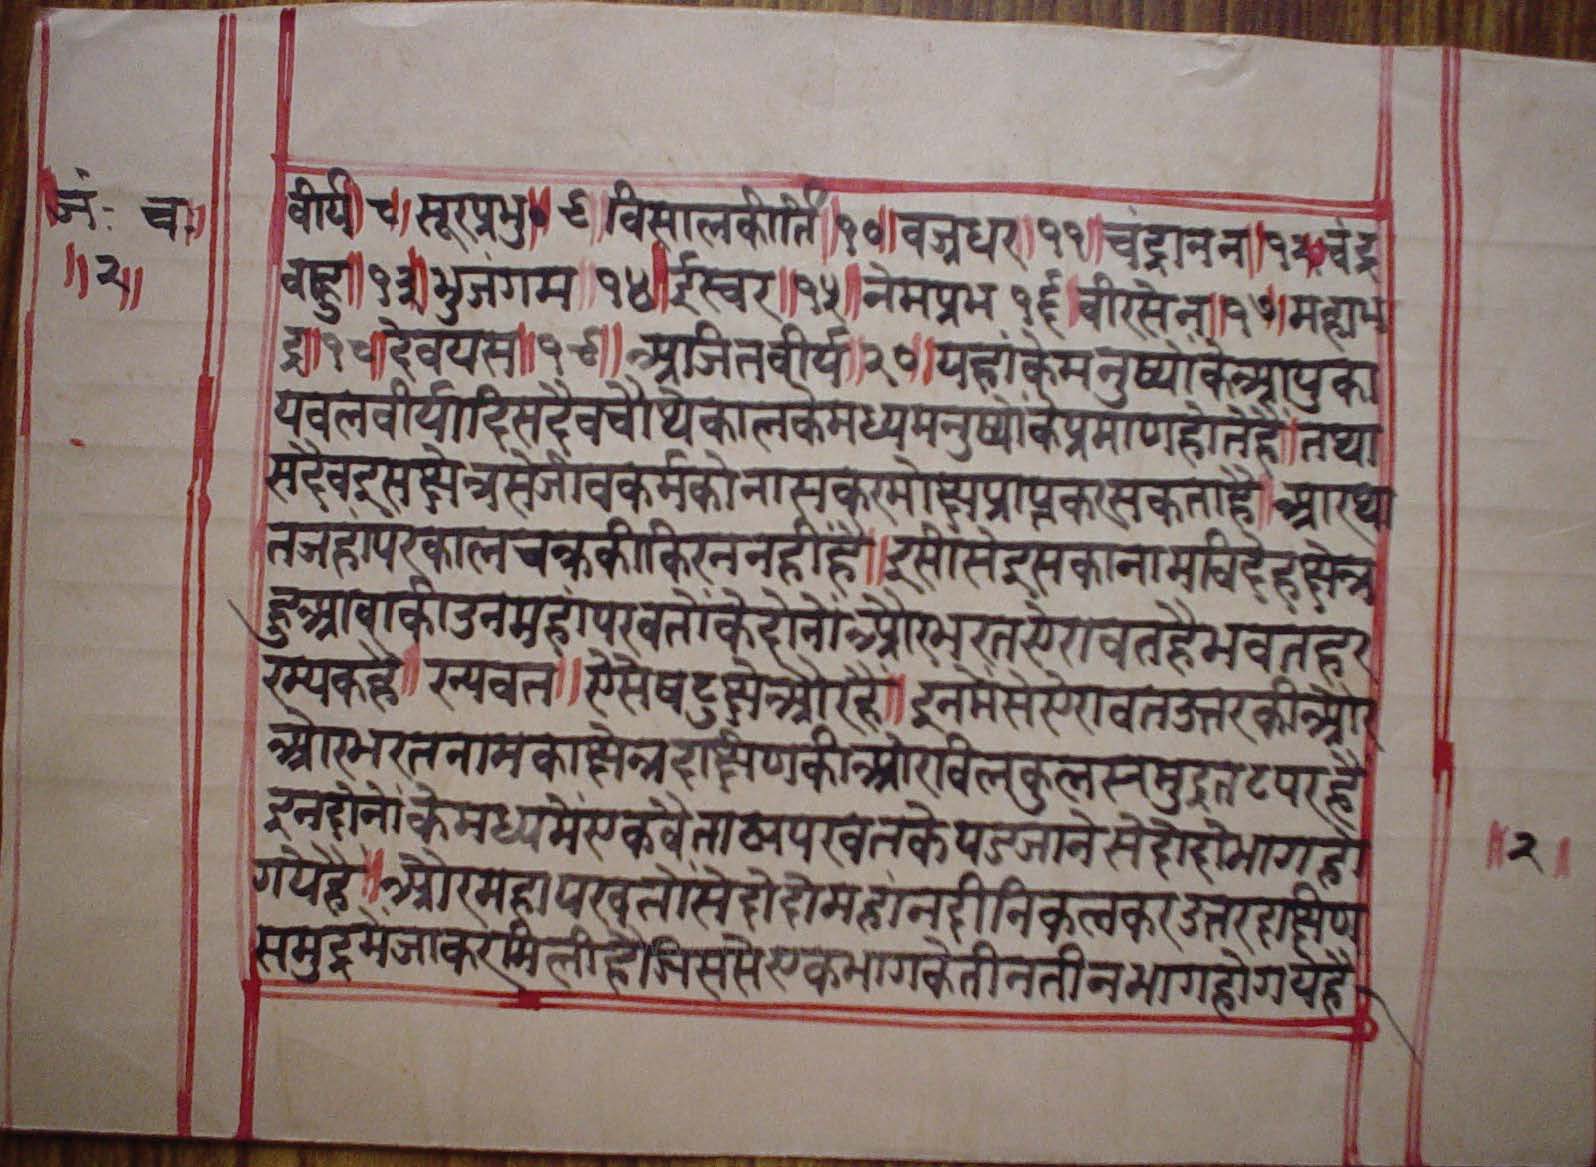 जं: च॥
॥२॥
वीर्य॥ ८॥ सूरप्रभु॥ ९॥ विसालकीर्ति॥ १०॥ वज्रधर॥ ११॥ चंद्रानन॥ १२॥ चंद्र
वाहु॥ १३॥ भुजंगम॥ १४॥ ईस्वर॥ १५॥ नेमप्रभ १६॥ वीरसेन॥ १७॥ महाभ
द्र॥ १८॥ देवयस॥ १९॥ अजितवीर्य॥ २०॥ यहांकेमनुष्योंकेआयुका
यवलवीर्यादिसदैवचौथेकालकेमध्यमनुष्योंकेप्रमाणहोतेहैं॥ तथा
सदैवइसक्षेत्रसेजीवकर्मकोनासकरमोक्षप्राप्तकरसकताहै॥ अरथा
तजहांपरकालचक्रकीकिरननहींहै॥ इसीसेइसकानामविदेहक्षेत्र
हुआवाकीउनमहांपरवतोंकेदोनोंऔरभरतऐरावतहैभवतहर
रम्यकहै॥ रन्यवत॥ ऐसेषटुक्षेऔरहैं॥ इनमेंसेऐरावतउत्तरकीऔर
औरभरतनामकाक्षेत्रदक्षिणकीओरविलकुलसमुद्रतटपरहै
इनदोनोंकेमध्यमेंएकवैताढ्यपरवतकेपडजानेसेदोदोभागहो
गयेहै॥ औरमहापरवतोंसेदोदोमहांनदीनिकलकरउत्तरदक्षिण
समुद्रमेंजाकरमिलीहैजिससेएकभागकेतीनतीनभागहोगयेहै
॥२॥